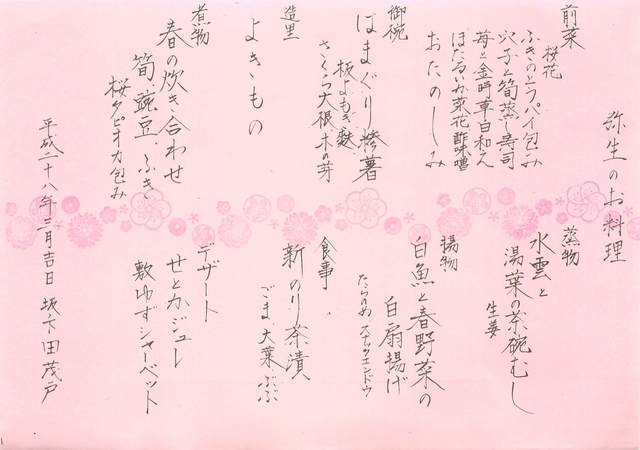 弥生のお料理
前菜
桜花
ふきのとうパイ包み
穴子と筍蒸し寿司
苺と金時草白和え
ほたるいか菜花酢味噌
おたのしみ
御椀
はまぐり糝薯
板よもぎ麩
さくら大根、木の芽
造里
よきもの
煮物
春の炊き合わせ
筍 豌豆、ふき
桜タピオカ包み
蒸物
水雲と
湯葉の茶碗むし
生姜
揚物
白魚と春野菜の
白扇揚げ
たらのめ スナックエンドウ
食事
新のり茶漬
ごま、大葉、ぶぶ
デザート
せとかジュレ
敷ゆずシャーベット
平成二十八年三月吉日 坂下田茂戸